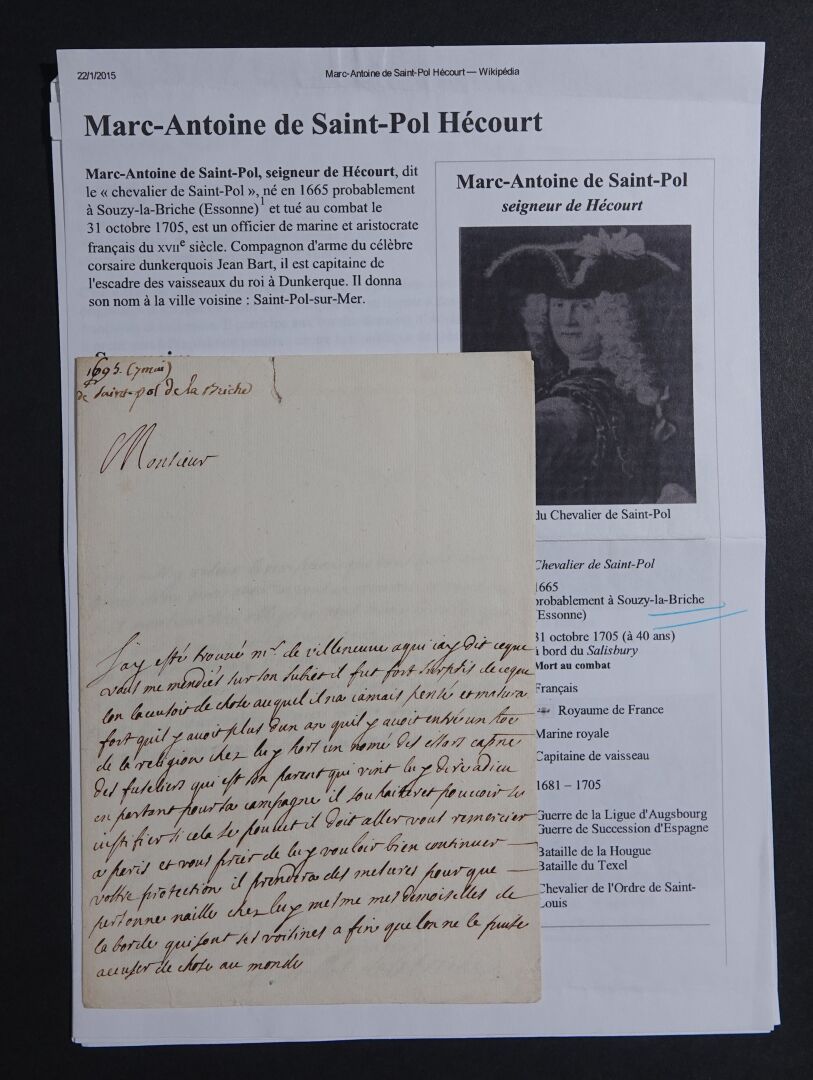 22/1/2015
Marc-Antoine de Saint-Pol Hécourt — Wikipédia
Marc-Antoine de Saint-Pol Hécourt
Marc-Antoine de Saint-Pol, seigneur de Hécourt, dit
le « chevalier de Saint-Pol », né en 1665 probablement
à Souzy-la-Briche (Essonne)1 et tué au combat le
31 octobre 1705, est un officier de marine et aristocrate
français du XVIIe siècle. Compagnon d'arme du célèbre
corsaire dunkerquois Jean Bart, il est capitaine de
l'escadre des vaisseaux du roi à Dunkerque. Il donna
son nom à la ville voisine : Saint-Pol-sur-Mer.
Marc-Antoine de Saint-Pol
seigneur de Hécourt
du Chevalier de Saint-Pol
Chevalier de Saint-Pol
1665
probablement à Souzy-la-Briche
(Essonne)
31 octobre 1705 (à 40 ans)
à bord du Salisbury
Mort au combat
Français
Royaume de France
Marine royale
Capitaine de vaisseau
1681 – 1705
Guerre de la Ligue d'Augsbourg
Guerre de Succession d'Espagne
Bataille de la Hougue
Bataille du Texel
Chevalier de l'Ordre de Saint-
Louis
1695. (7 mai)
de Saint-pol de la Briche
Monsieur
J'ay esté trouué mr. de villeneuue a qui iay dit ceque
vous me mendiés sur son subiet il fut fort surpris de ceque
lon lacusoit de chose auquel il na iamais pensé et masura
fort quil y auoit plus dun an quil y auoit entré un
de la religion chez luy hors un nomé des essars capne
des fuseliers qui est son parent qui vint luy dire adieu
en partant pour sa campagne il souhaiteret pouuoir se
iustifier si cela se pouuet il doit aller vous remercier
a paris et vous prier de luy vouloir bien continuer
vostre protection il prendera des mesures pour que
personne naille chez luy mesme mes demoiselles de
la borde qui sont ses voisines a fin que lon ne le puise
accuser de chose au monde